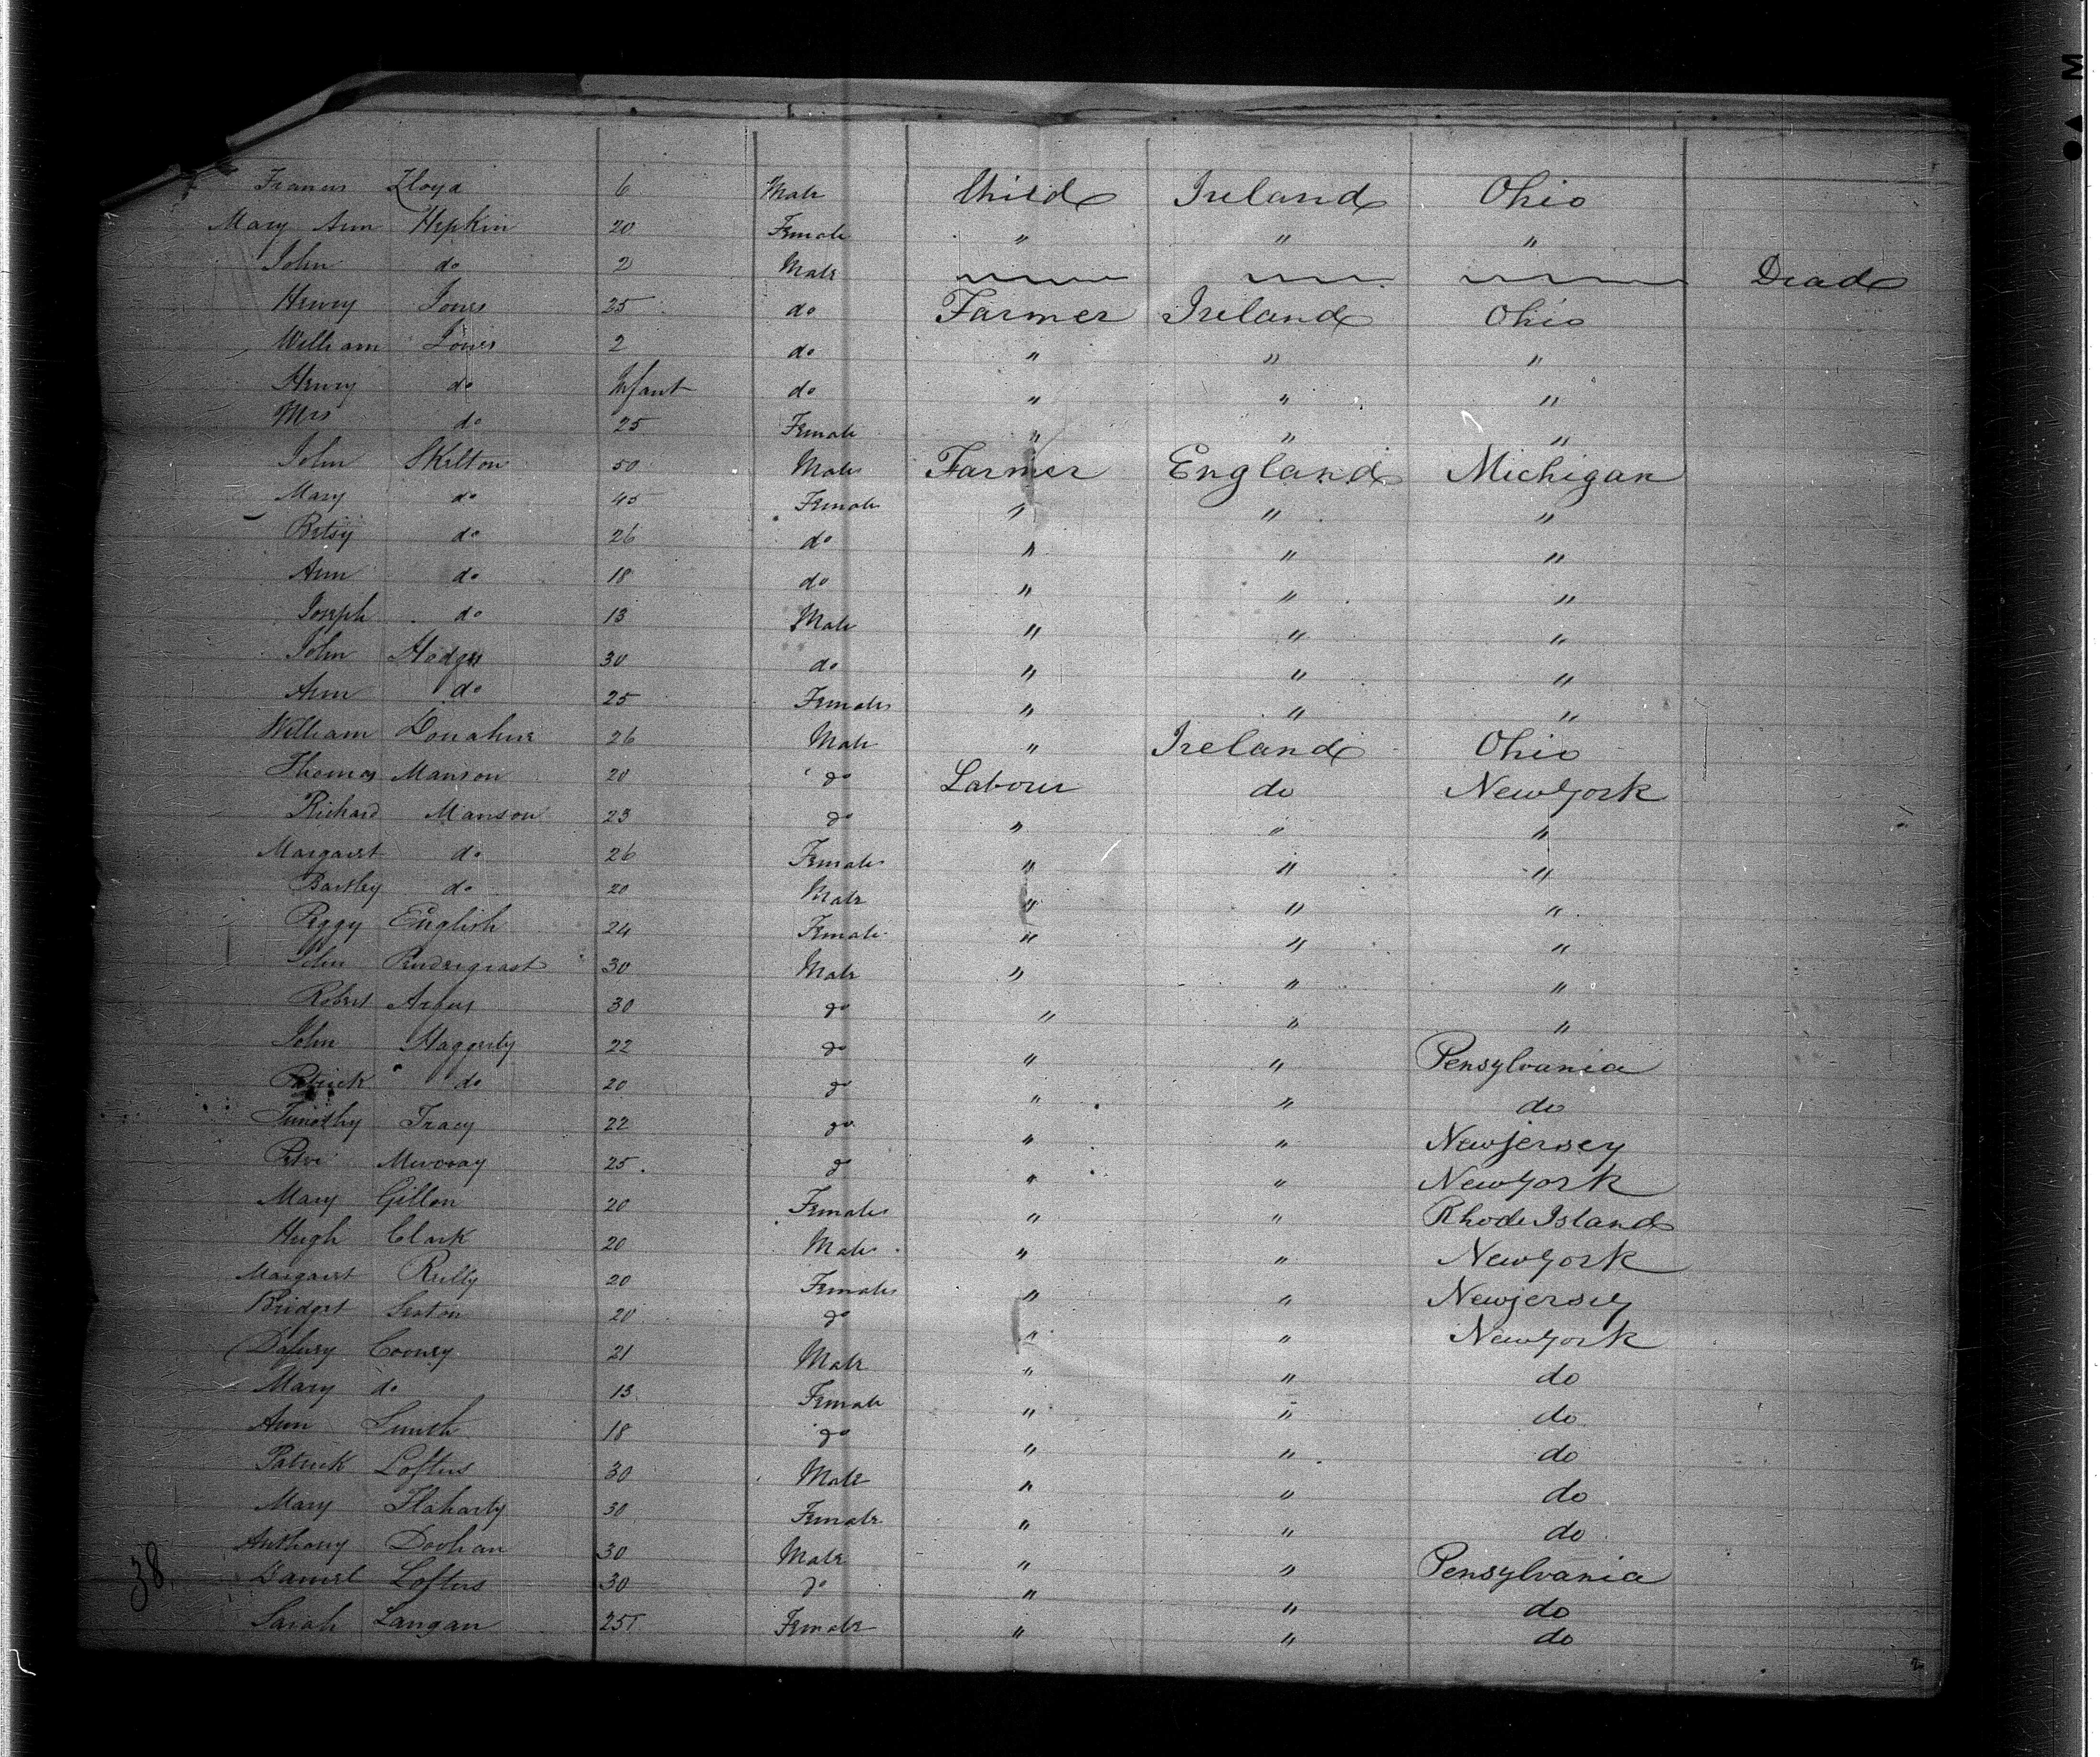 Francis Lloyd 6 Male Child Ireland Ohio
Mary Ann Hipkin 20 Female " " "
John do 2 Male Dead
Henry Jones 25 do Farmer Ireland Ohio
William Jones 2 do " " "
Henry do Infant do " " "
Mrs do 25 Female " " "
John Skelton 50 Male Farmer England Michigan
Mary do 45 Female " " "
Betsy do 26 do " " "
Ann do 18 do " " "
Joseph do 13 Male " " "
John Hodges 30 do " " "
Ann do 25 Female " " "
William Donahue 26 Male " Ireland Ohio
Thomas Manson 20 do Labour do New York
Richard Manson 23 do " " "
Margaret do 26 Female " " "
Bartley do 20 Male " " "
Peggy English 24 Female " " "
John 30 Male " " "
Robert 30 do " " "
John Haggerty 22 do " " Pensylvania
Patrick do 20 do " " do
Timothy Tracy 22 do " " New Jersey
25 do " " New York
Mary Gillon 20 Female " " Rhode Island
Hugh Clark 20 Male " " New York
Margaret Reilly 20 Female " " New Jersey
Bridget 20 do " " New York
Cooney 21 Male " " do
Mary do 13 Female " " do
Ann 18 do " " do
Patrick Loftus 30 Male " " do
Mary Flaharty 30 Female " " do
Anthony Doohan 30 Male " " Pensylvania
Daniel Loftus 30 do " " do
Sarah Langan 25 Female " " do
38